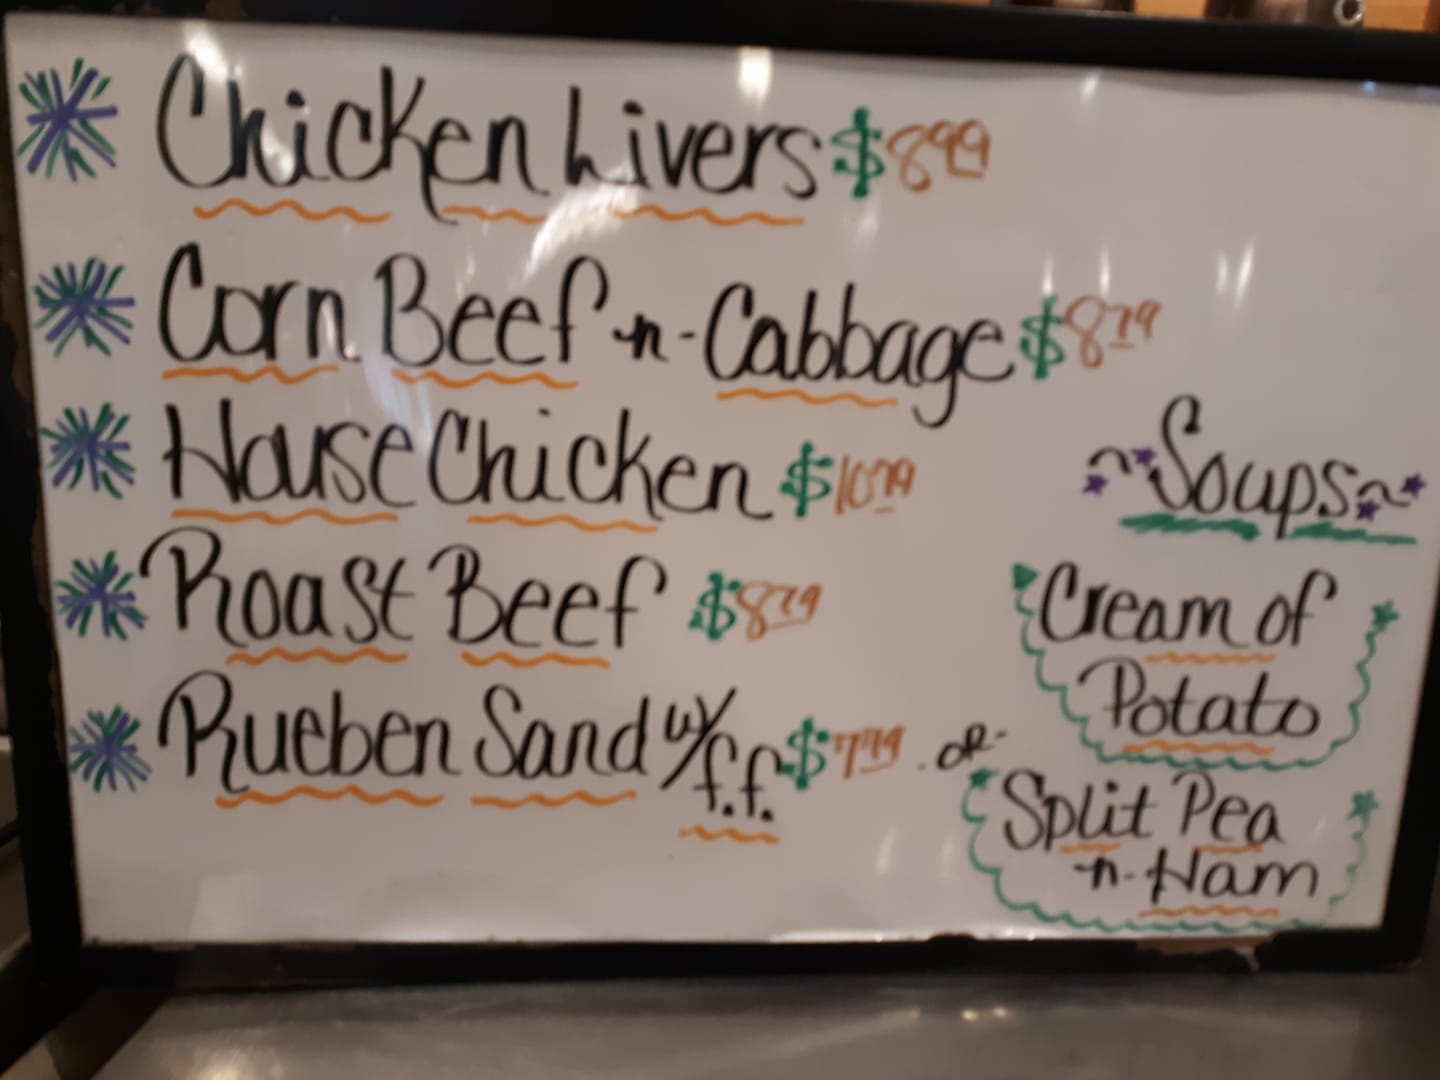 Chicken Livers $8.99
Corn Beef -n- Cabbage $8.79
House Chicken $10.79
Roast Beef $8.79
Rueben Sand w/ f.f. $7.79
~Soups~
Cream of
Potato
-or-
Split Pea
-n- Ham